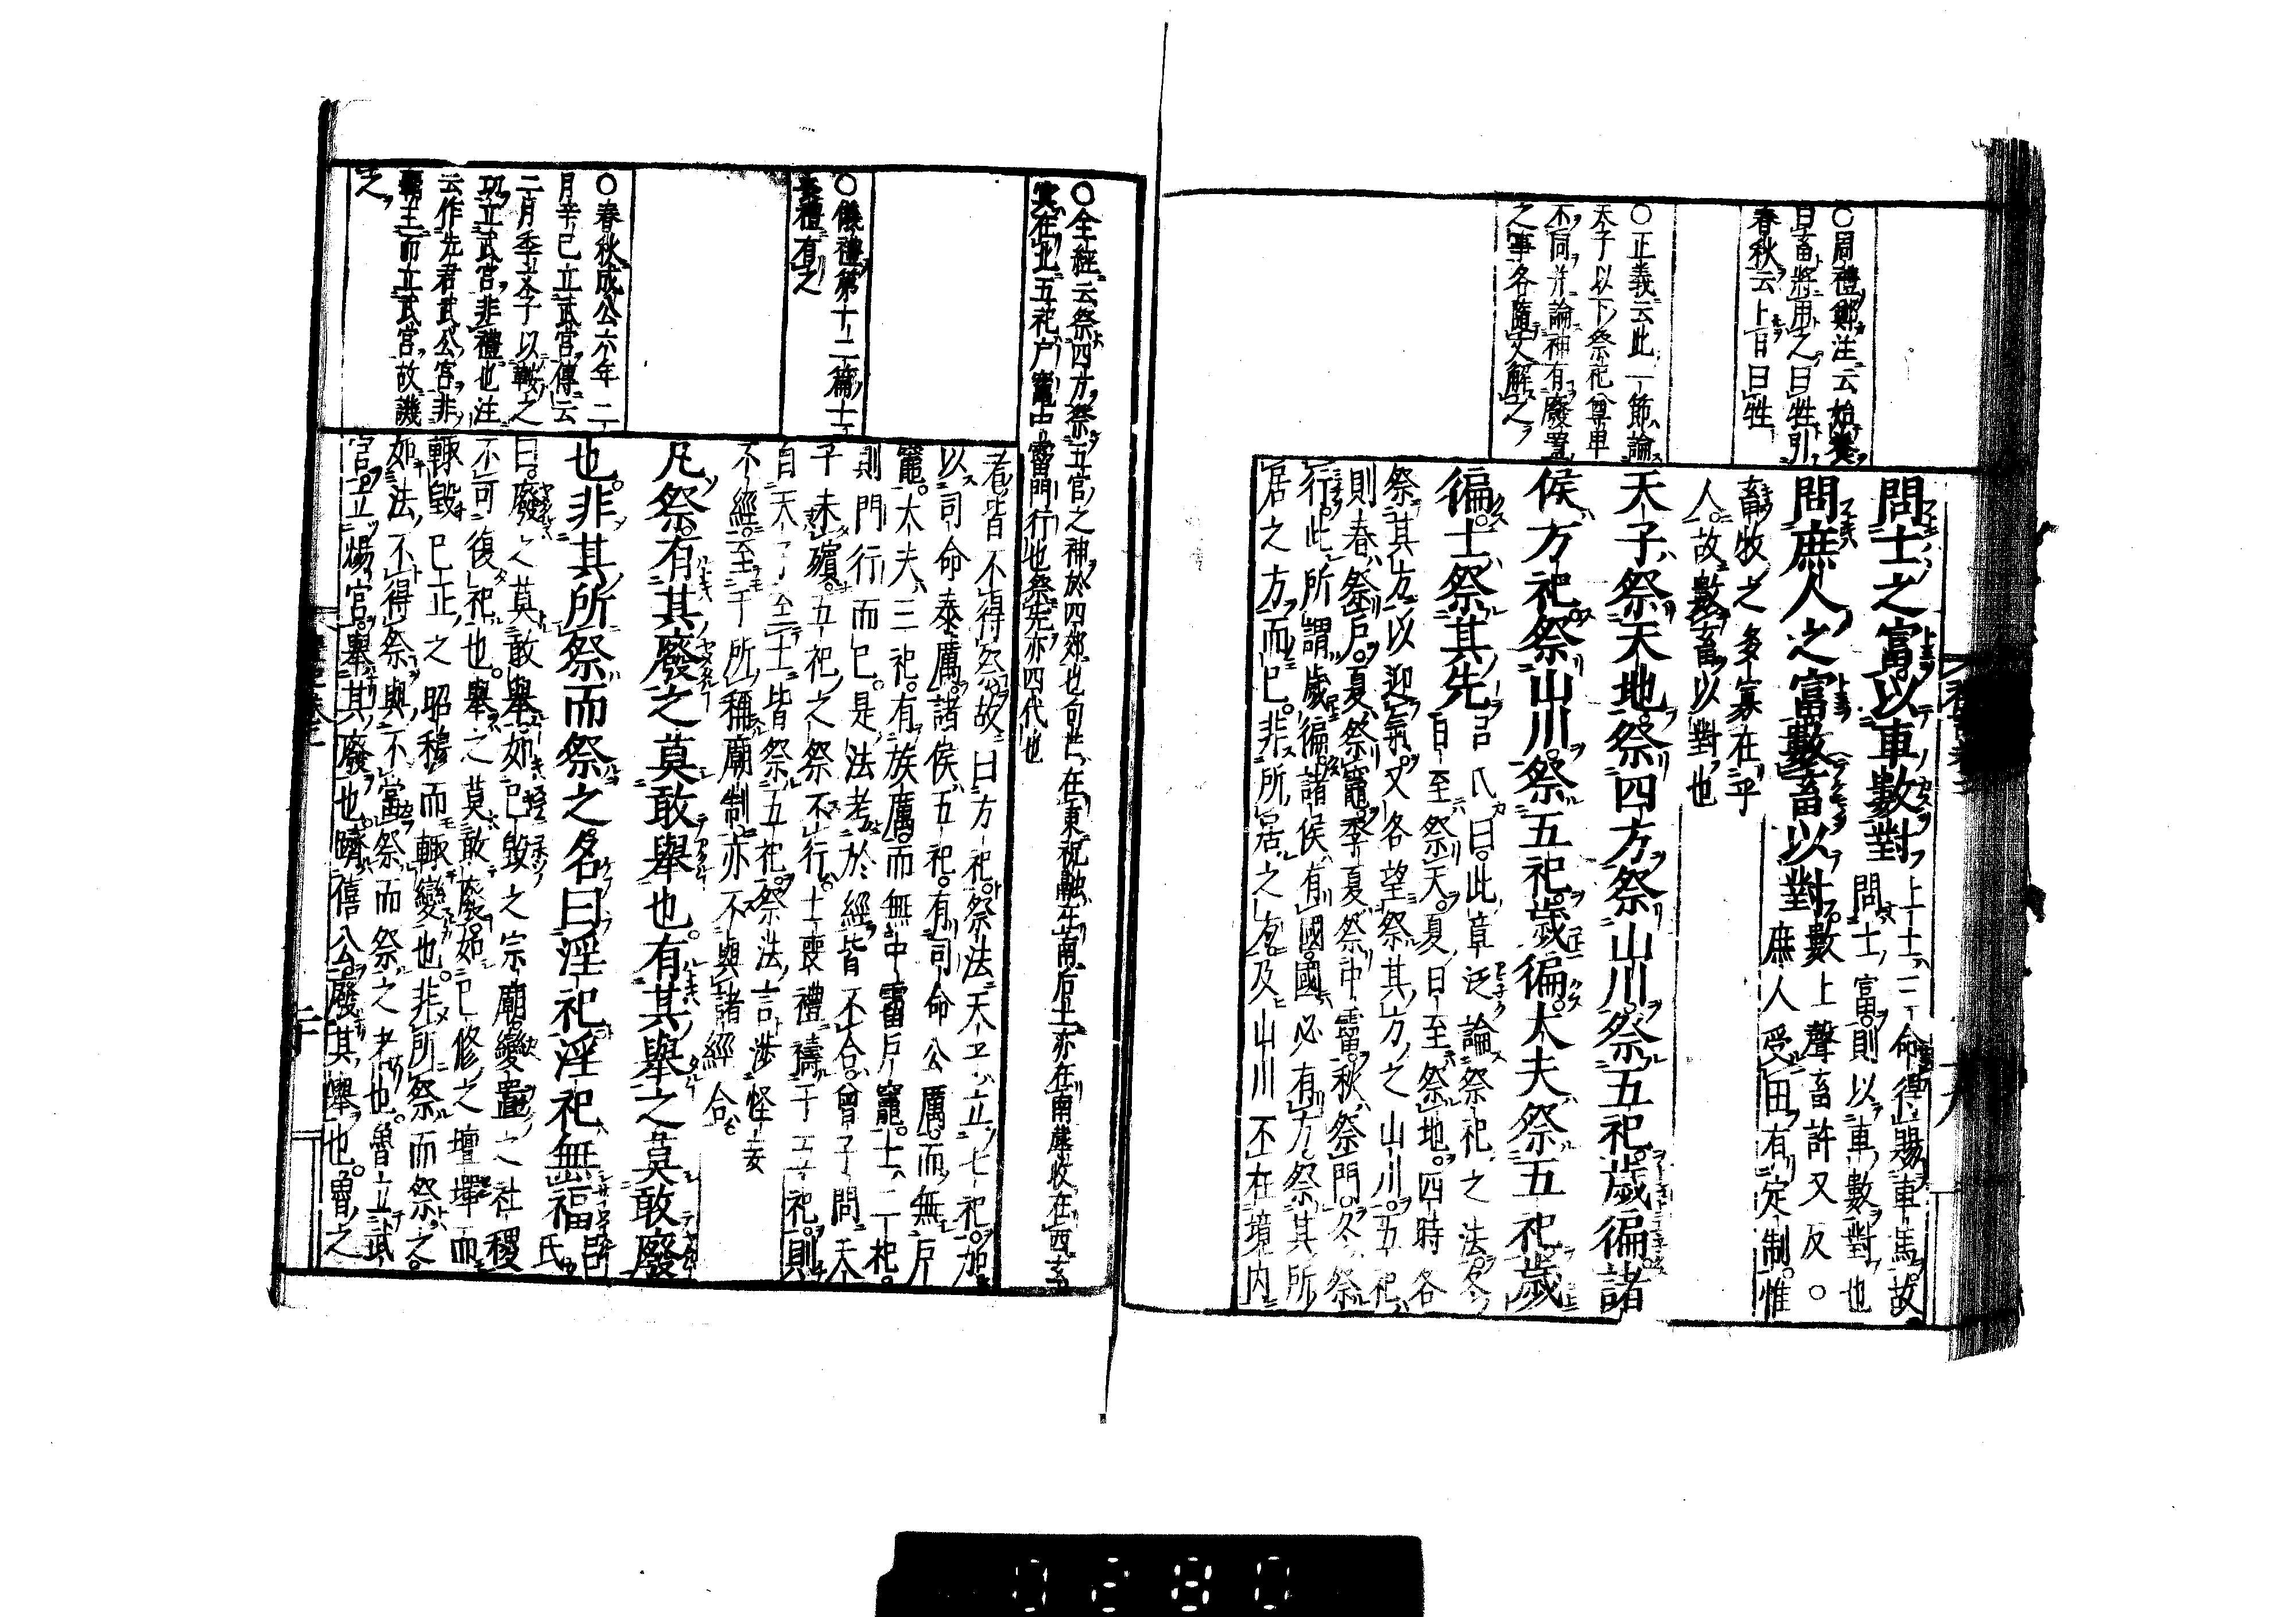 ○周禮鄭注云始養
曰畜將用之曰牲引
春秋云卜日曰牲
○正義云此一節論
天子以下祭祀尊卑
不同并論神有廢置
之事各隨文解之
問士之富以車數對上士三命得賜車馬故
問士富則以車數對也
問庶人之富數畜以對數上聲畜許又反○
庶人受田有定制惟
畜牧之多寡在乎
人故數畜以對也
天子祭天地祭四方祭山川祭五祀歲徧諸
侯方祀祭山川祭五祀歲徧大夫祭五祀歲
徧士祭其先呂氏曰此章泛論祭祀之法冬
日至祭天夏日至祭地四時各
祭其方以迎氣又各望祭其方之山川五祀
則春祭戶夏祭竈季夏祭中霤秋祭門冬祭
行此所謂歲徧諸侯有國國必有方祭其所
居之方而已非所居之方及山川不在境內
○全經云祭四方祭五官之神於四郊也句芒在東祝融在南后土亦在南蓐收在西玄
冥在北五祀戶竈中霤門行也祭先亦四代也
○儀禮第十二篇士
喪禮有之
○春秋成公六年二
月辛巳立武宮傳云
二月季文子以鞍之
功立武宮非禮也注
云作先君武公宮非
而立武宮故譏
之
者皆不得祭故曰方祀祭法天子立七祀加
以司命泰厲諸侯五祀有司命公厲而無戶
竈大夫三祀有族厲而無中霤戶竈士二祀
則門行而已是法考於經皆不合曾子問天
子未殯五祀之祭不行士喪禮禱于五祀則
自天子至士皆祭五祀祭法言涉怪妄
不經至于所稱廟制亦不與諸經合
凡祭有其廢之莫敢舉也有其舉之莫敢廢
也非其所祭而祭之名曰淫祀淫祀無福呂氏
曰廢之莫敢舉如已毀之宗廟變置之社稷
不可復祀也舉之莫敢廢如已修之壇墠而
輒毀已正之昭穆而輒變也非所祭而祭之
如法不得祭與不當祭而祭之者也魯立武
宮立煬宮舉其廢也躋僖公廢其舉也魯之